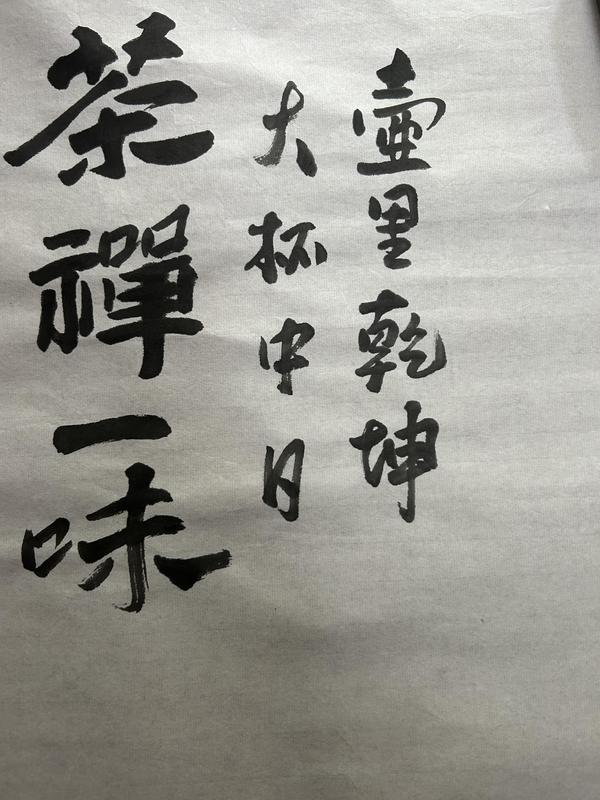 壺里乾坤
大杯中日
茶禪一味